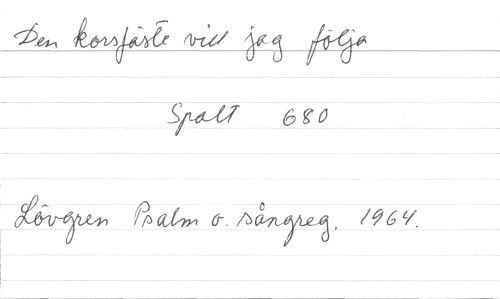 Den korsfäste vill jag följa
Spalt 680
Lövgren Psalm o. sångreg. 1964.